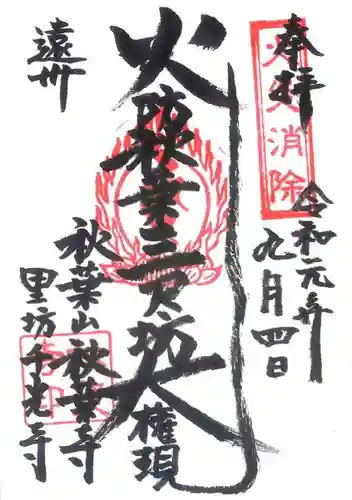 奉拝
火災消除
令和元年九月四日
火
秋葉三尺坊大権現
遠州
秋葉山秋葉寺
里坊千光寺